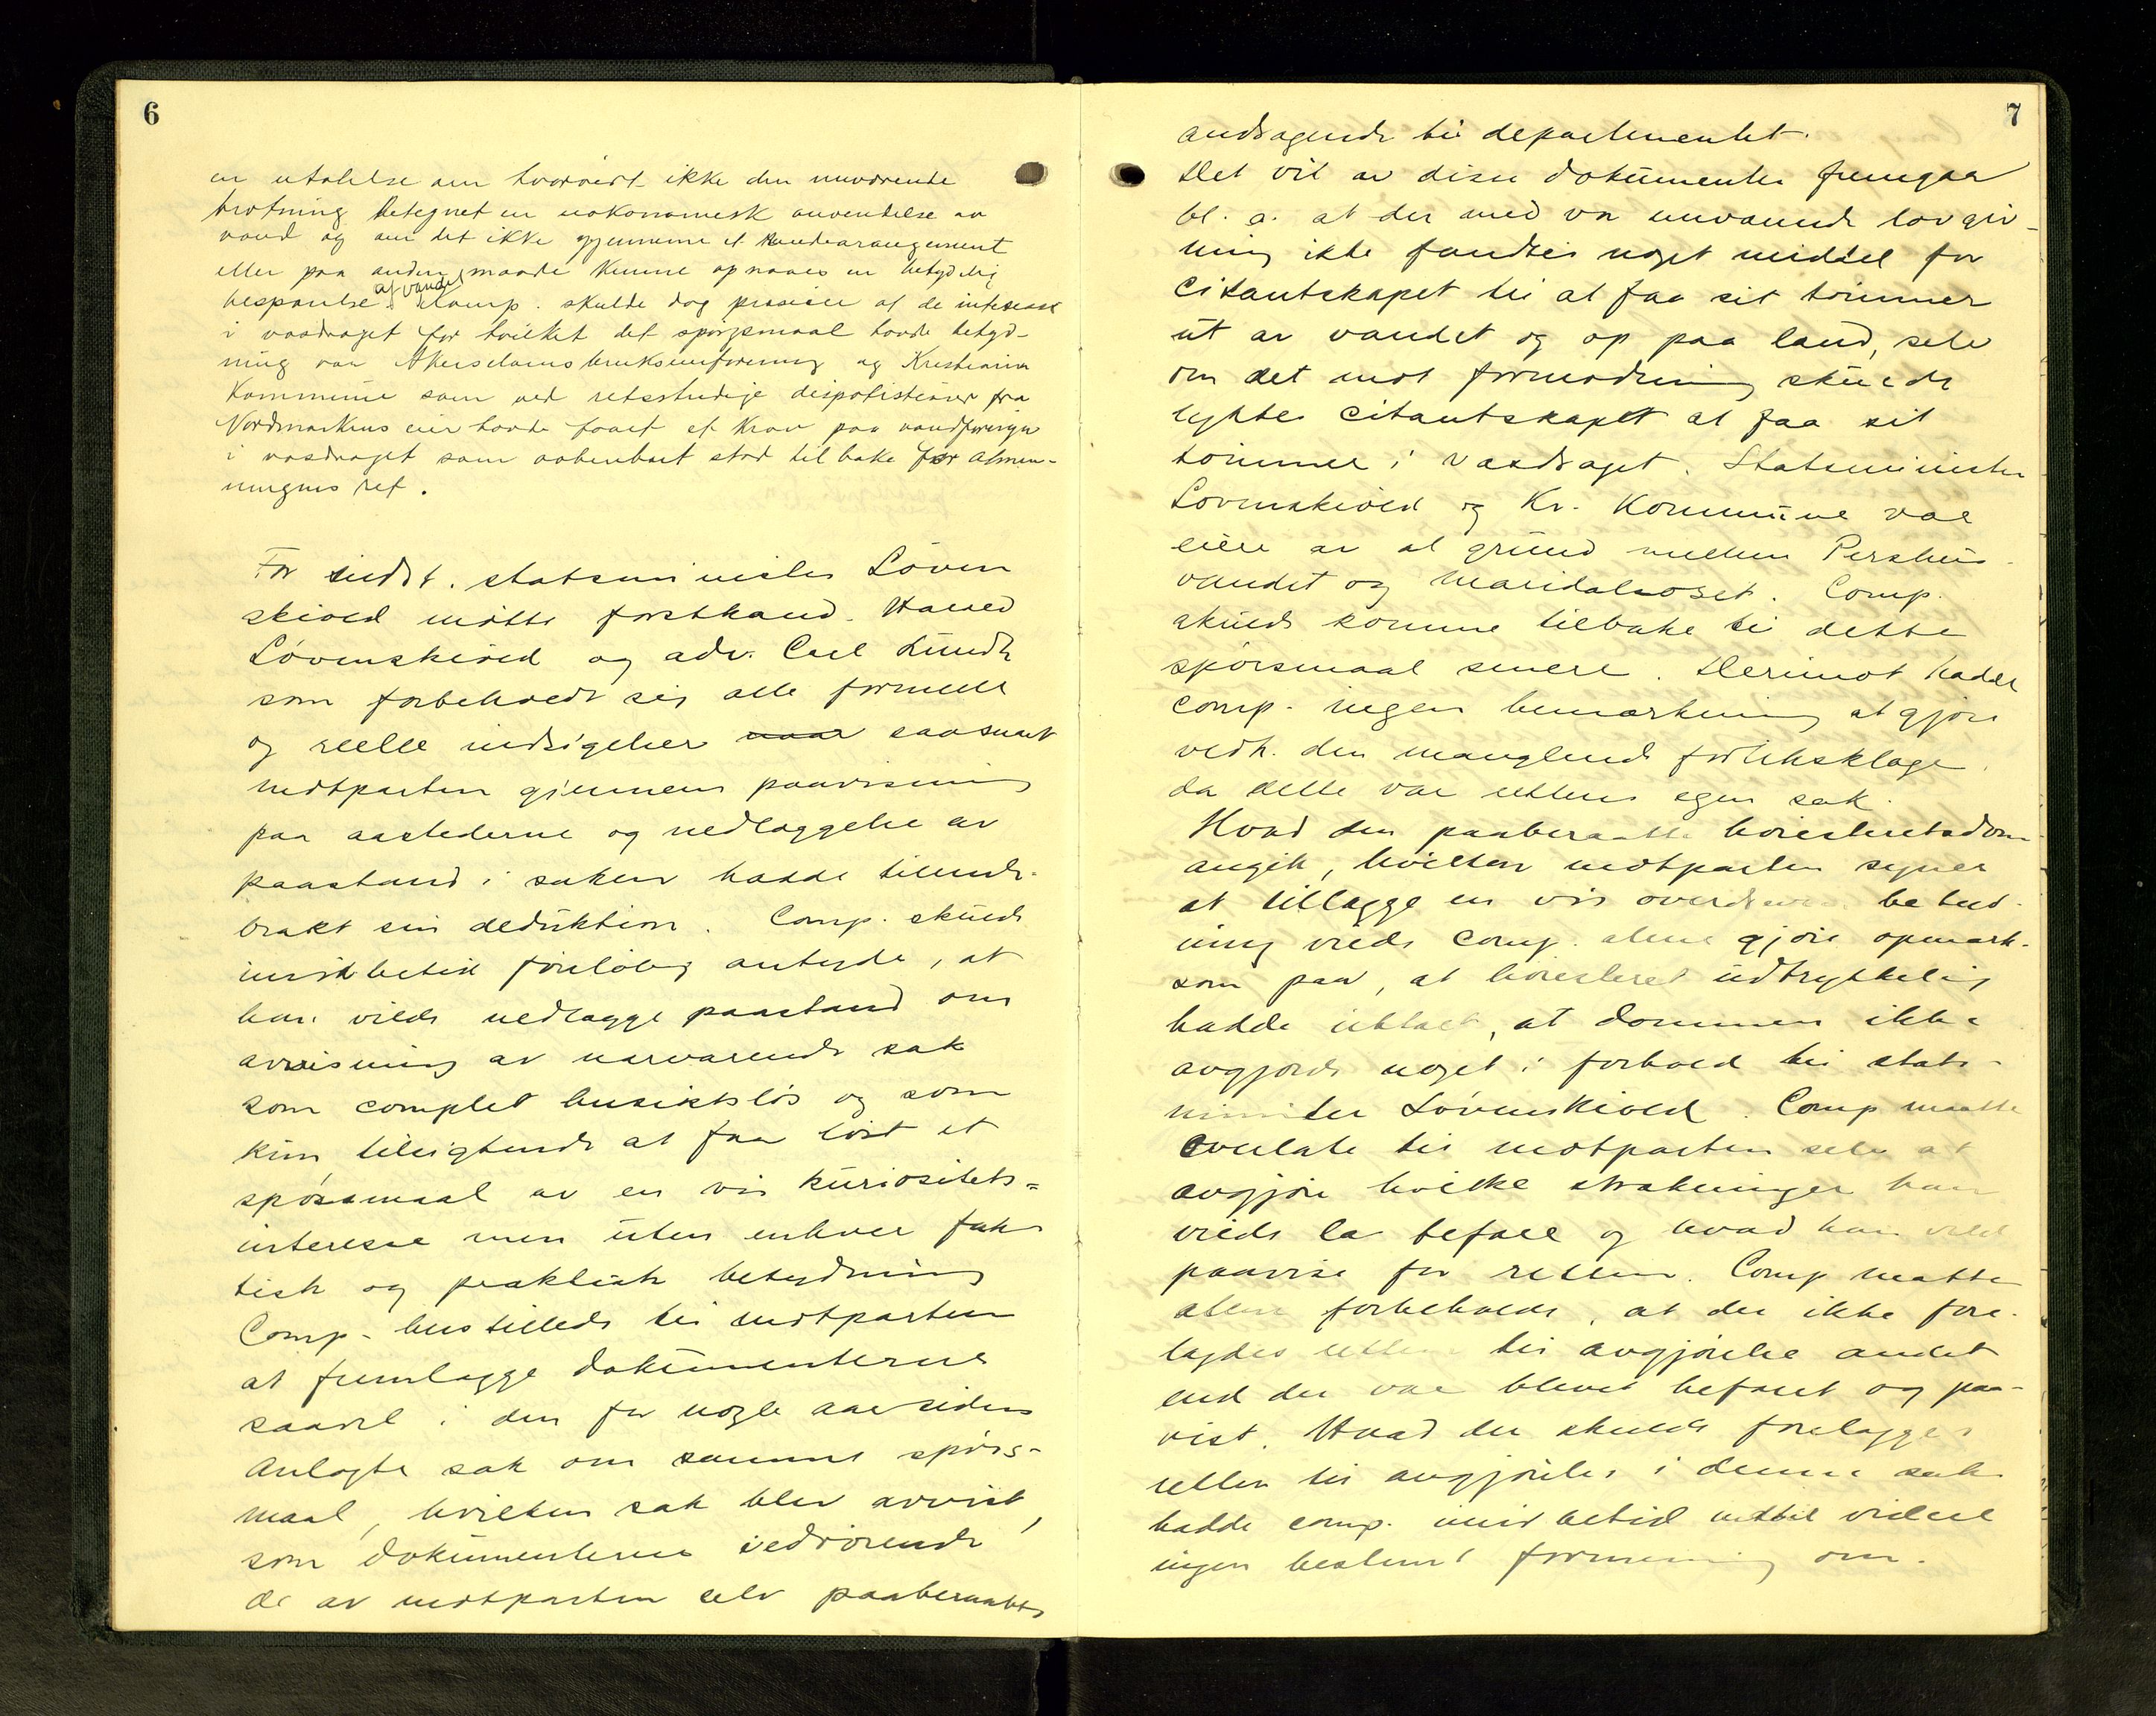 6
en utalelse om hvorvidt ikke den nuværende
fløtning betegnet en uøkonomisk anvendelse av
vand og om det ikke gjennem et andet arangement
eller paa anden maade kunne opnaaes en betydelig
besparelse af vandet. Comp. skulde dog præcisere at de interesser
i vasdraget for hvilket det spørgsmaal havde betyd-
ning var Akerselvens brukseierforening og Kristiania
Kommune som ved retsstridige dispositioner fra
Nordmarkens eier havde faaet et krav paa vandføringen
i vasdraget som aabenbart stod tilbake for almen-
ningens ret.
For indst. statsminister Löven
skiold mötte forstkand. Harald
Lövenskiold og adv. Carl Lundh
som forbeholdt sig alle formelle
og reelle indsigelser naar saasnart
motparten gjennem paavisning
paa aastederne og nedlæggelse av
paastand i saken hadde tilende-
brakt sin deduktion. Comp. skulde
imidlertid foreløbig antyde, at
han vilde nedlægge paastand om
avvisning av nærværende sak
som complet hensiktsløs og som
kun tilsigtende at faa løst et
spørsmaal av en vis kuriositets-
interesse men uten enhver fak
tisk og praktisk betydning
Comp. henstillede til motparten
at fremlægge dokumenterne
saavel i den for nogle aar siden
anlagte sak om samme spørs-
maal, hvilken sak blev avvist,
som dokumenterne vedrørende
de av motparten selv paaberaabte
7
andragende til departementet.
Det vil av disse dokumenter fremgaa
bl. a. at der med vor nuværende lovgiv-
ning ikke fandtes noget middel for
Citantskapet til at faa sit tömmer
ut av vandet og op paa land, selv
om det mot formodning skulde
lykkes citantskapet at faa sit
tömmer i vasdraget. Statsminister
Lövenskiold og Kr. Kommune var
eiere av al grund mellem Pershus-
vandet og Maridalsoset. Comp.
skulde komme tilbake til dette
spörsmaal senere. Derimot hadde
comp. ingen bemerkning at gjöre
vedr. den manglende forliksklage
da dette var rettens egen sak.
Hvad den paaberaabte höiesteretsdom
angik, hvilken motparten synes
at tillægge en vis overdreven betyd-
ning vilde comp. alene gjöre opmerk-
som paa, at höiesteret udtrykkelig
hadde uttalt, at dommen ikke
avgjorde noget i forhold til stats-
minister Lövenskiold. Comp maatte
overlate til motparten selv at
avgjöre hvilke strækninger han
vilde la befare og hvad han vilde
paavise for retten. Comp maatte
alene forbeholde, at der ikke fore-
lagdes retten til avgjörelse andet
end der var blevet befaret og paa-
vist. Hvad der skulde forelægges
retten til avgjörelse i denne sak
hadde comp. imidlertid indtil videre
ingen bestemt formening om.